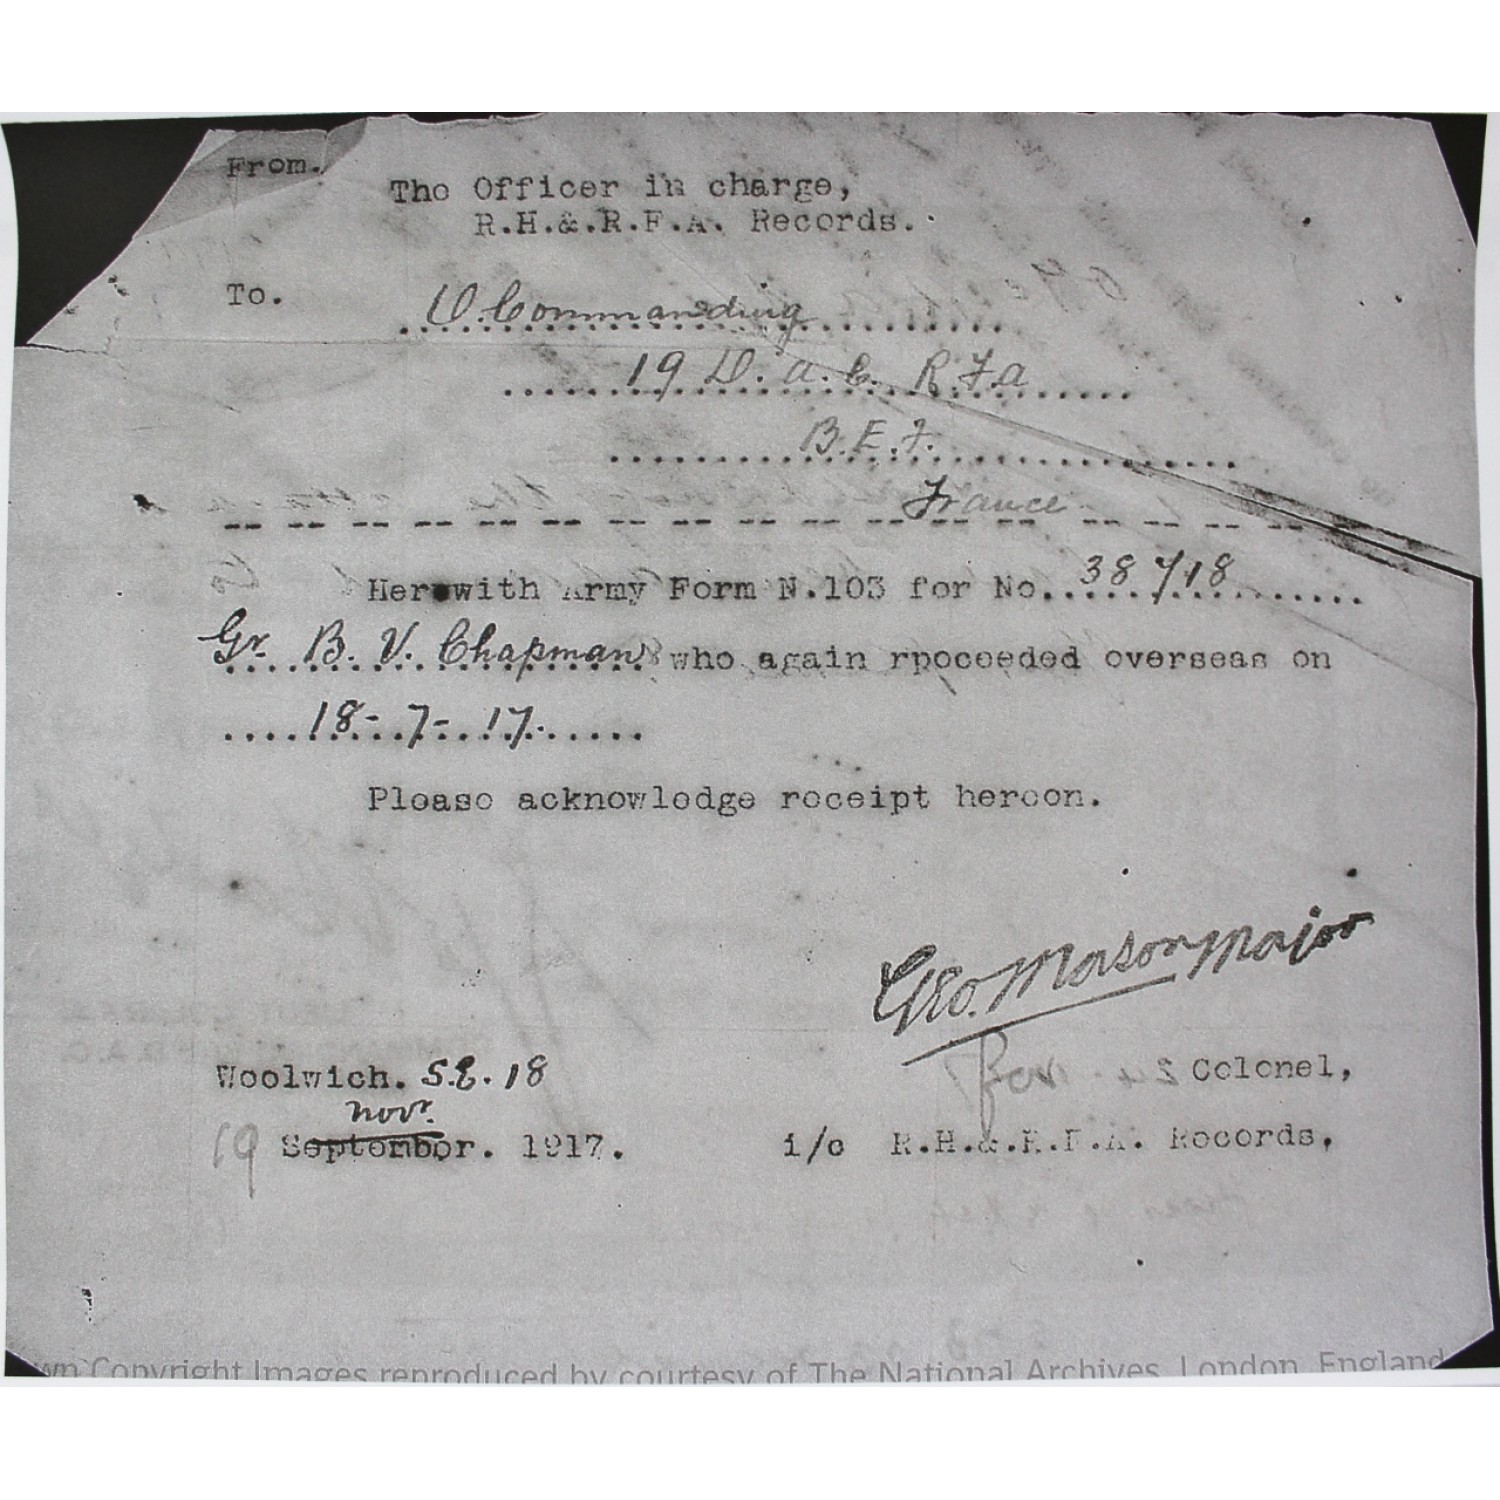 From.
The Officer in charge,
R.H.&.R.F.A. Records.
To.
O. Commanding
19 D.A.C. R.F.A
B.E.F.
France
Herewith Army Form N.103 for No. 38718
Gr. B. V. Chapman who again rpoceeded overseas on
18-7-17.
Please acknowledge receipt hereon.
Geo. Mason Major
for Colonel,
Woolwich. S.E. 18
Novr.
19 September. 1917.
i/c R.H.&.R.F.A. Records,
Copyright Images reproduced by courtesy of The National Archives, London, England